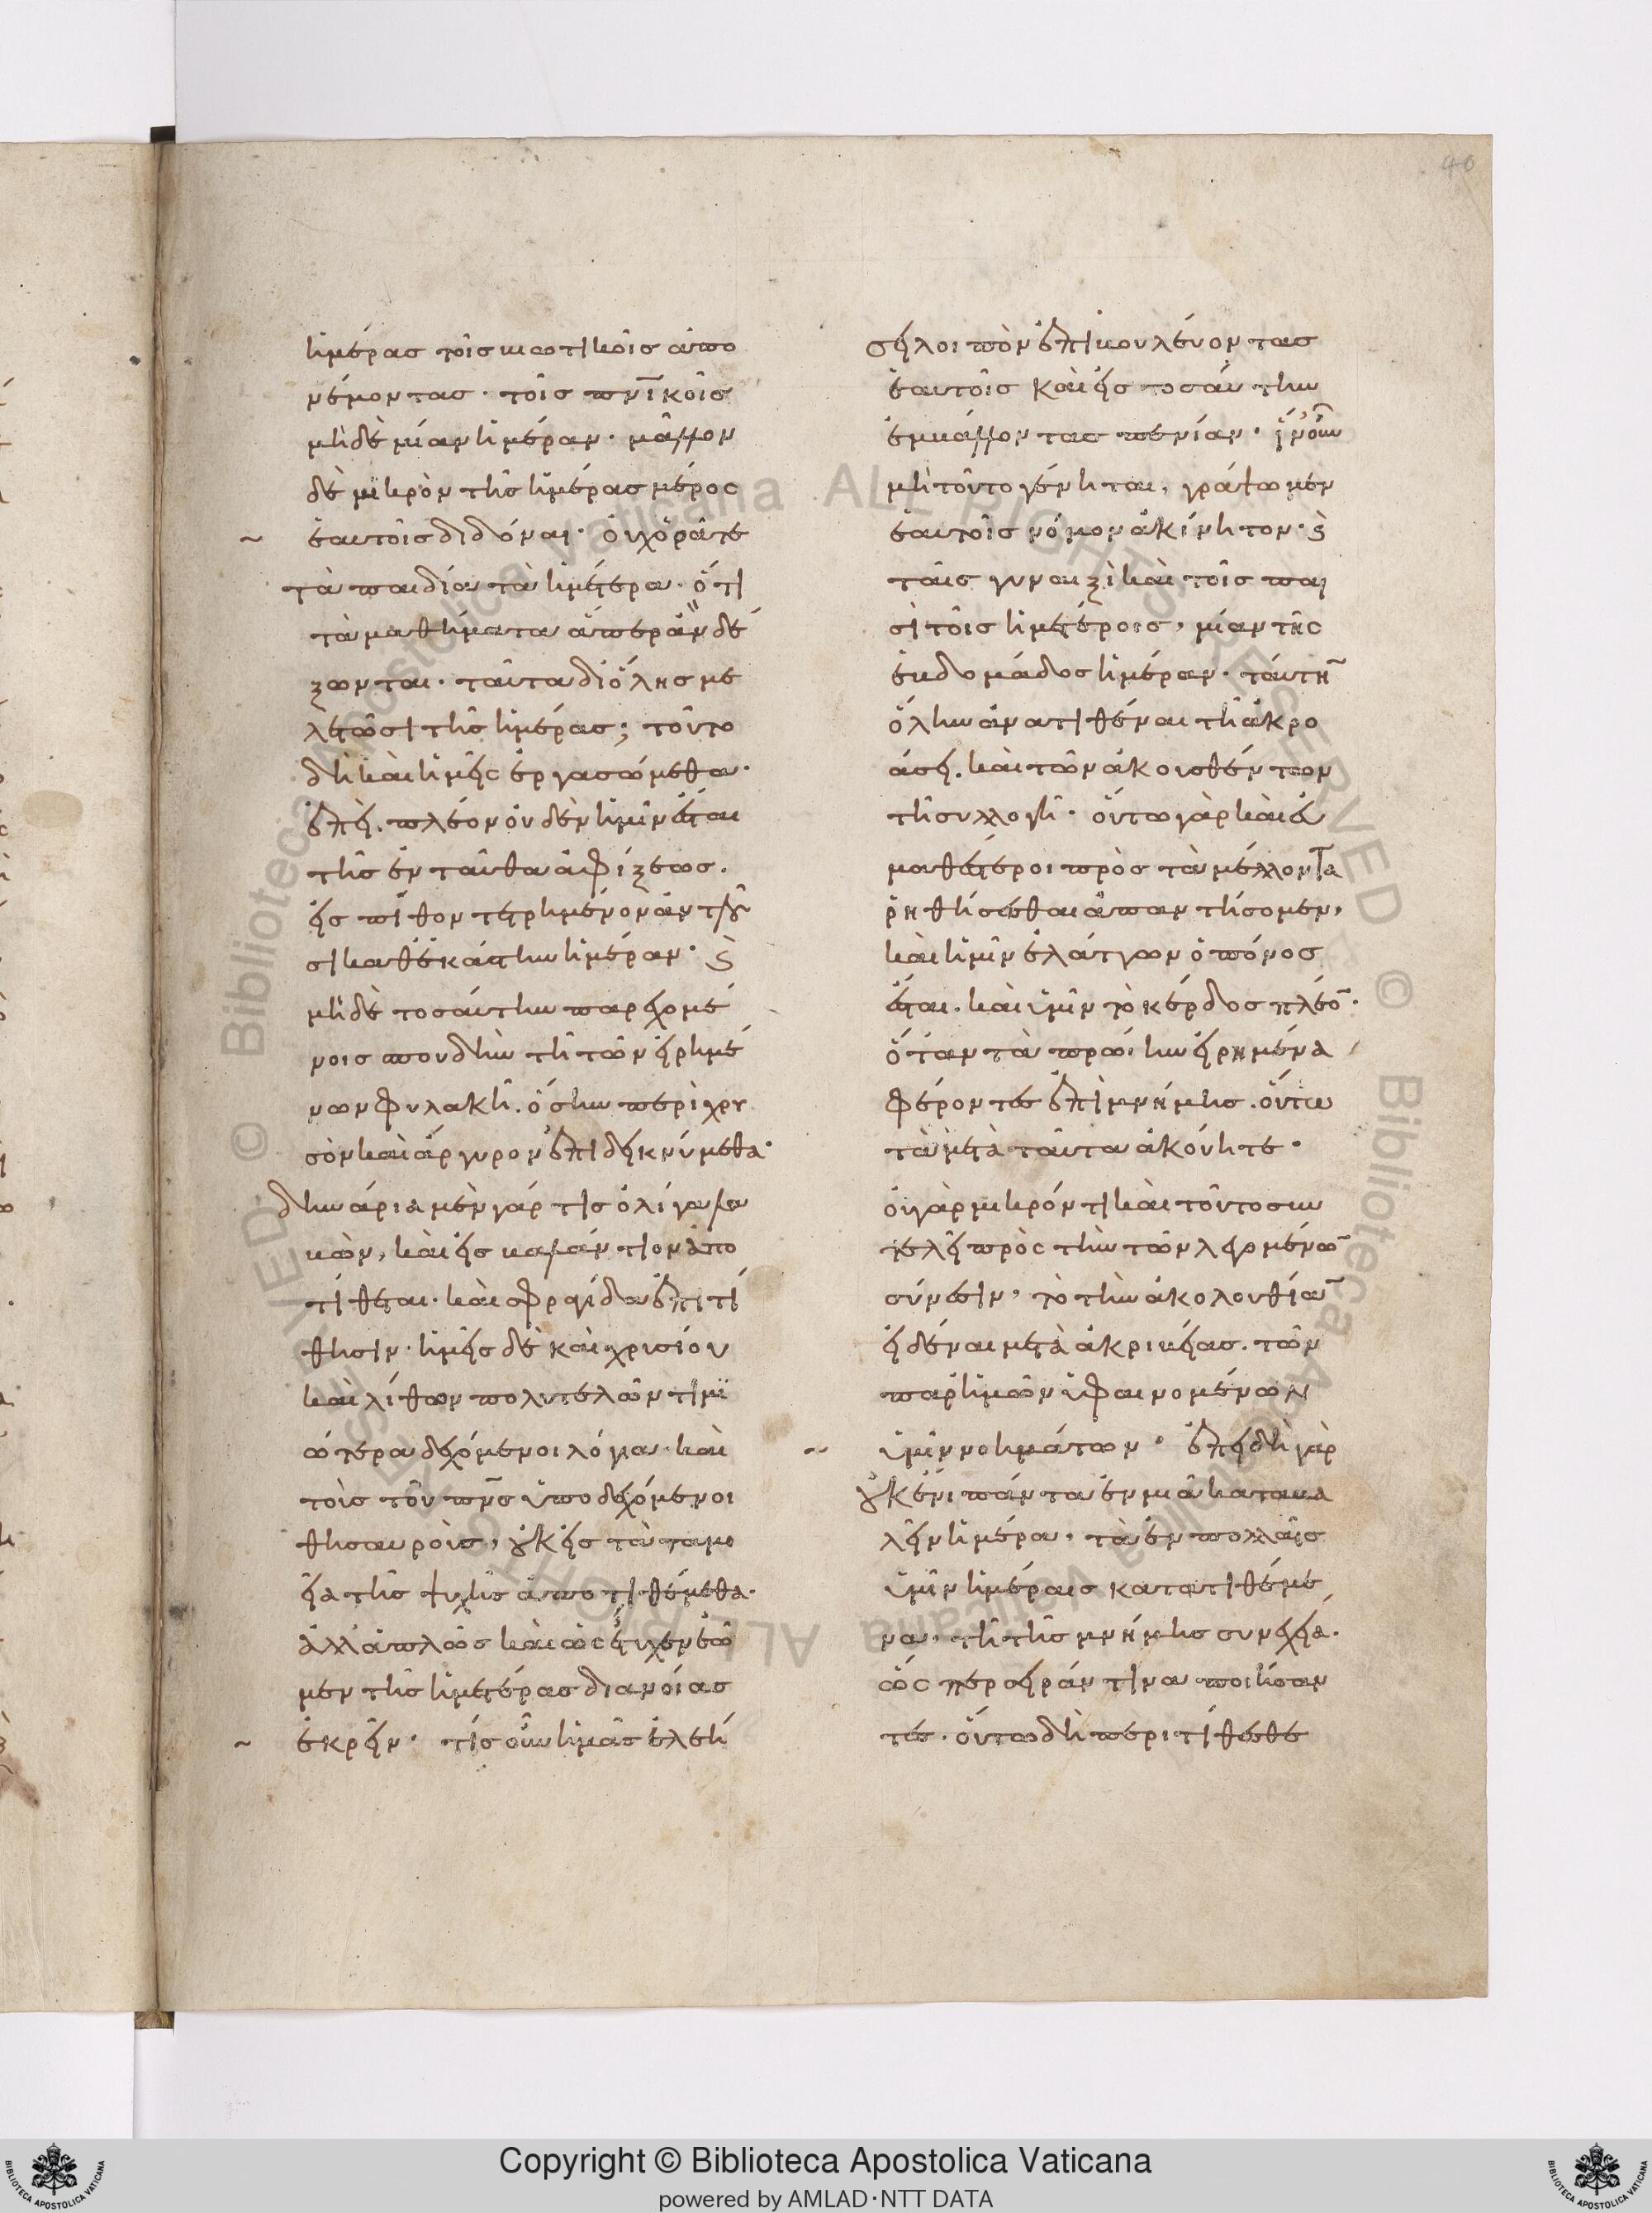 40
ἡμέρας τοῖς βιωτικοῖς ἀπο
νέμοντας· τοῖς πν̅ικοῖς
μηδὲ μίαν ἡμέραν· μᾶλλον
δὲ μικρὸν τῆς ἡμέρας μέρος
ἑαυτοῖς διδόναι· οὐχ ὁρᾶτε
τὰ παιδία τὰ ἡμέτερα· ὅτι
τὰ μαθήματα ἅπερ ἂν δέ
ξωνται· ταῦτα δι ὅλης με
λετῶσι τῆς ἡμέρας; τοῦτο
δὴ καὶ ἡμεῖς ἐργασώμεθα·
ἐπεὶ πλέον οὐδὲν ἡμῖν ἔσται
τῆς ἐνταῦθα ἀφίξεως.
εἰς πίθον τετρημένον ἀντλοῦ
σι καθ ἑκάστην ἡμέραν· καὶ
μηδὲ τοσαύτην παρεχομέ
νοις σπουδὴν τῆ τῶν εἰρημέ
νων φυλακῆ. ὅσην περὶ χρυ
σὸν καὶ ἄργυρον ἐπιδεικνύμεθα·
δηνάρια μὲν γάρ τις ὀλίγα λα
βὼν, καὶ εἰς βαλάντιον ἀπο
τίθεται. καὶ σφραγίδα ἐπιτί
θησιν· ἡμεῖς δὲ καὶ χρυσίου
καὶ λίθων πολυτελῶν τιμι
ώτερα δεχόμενοι λόγια· καὶ
τοὺς τοῦ πν̅ς ὑποδεχόμενοι
θησαυροὺς, οὐκ εἰς τὰ ταμι
εῖα τῆς ψυχῆς ἀποτιθέμεθα·
ἀλλ ἁπλῶς καὶ ὡς ἔτυχεν ἐῶ
μεν τῆς ἡμετέρας διανοίας
ἐκρεῖν· τίς οὖν ἡμᾶς ἐλεή
σειλοιπὸν ἐπιβουλεύοντας
ἑαυτοῖς καὶ εἰς τοσαύτην
ἐμβάλλοντας πενίαν· ἵν οὖν
μὴ τοῦτο γένηται, γράψωμεν
ἑαυτοῖς νόμον ἀκίνητον· καὶ
ταῖς γυναιξὶ καὶ τοῖς παι
σὶ τοῖς ἡμετέροις, μίαν τῆς
ἑβδομάδος ἡμέραν· ταύτη̅
ὅλην ἀνατιθέναι τῆ ἀκρο
άσει. καὶ τῶν ἀκουσθέντων
τῆ συλλογῆ· οὕτω γὰρ καὶ εὐ
μαθέστεροι πρὸς τὰ μέλλοντα
ῥηθήσεσθαι ἀπαντήσομεν,
καὶ ἡμῖν ἐλάττων ὁ πόνος
ἔσται. καὶ ὑμῖν τὸ κέρδος πλέο̅·
ὅταν τὰ πρώην εἰρημένα
φέροντες ἐπὶ μνήμης. οὕτω
τὰ μετὰ ταῦτα ἀκούητε·
οὐ γὰρ μικρόν τι καὶ τοῦτο συν
τελεῖ πρὸς τὴν τῶν λεγομένω̅
σύνεσιν, τὸ τὴν ἀκολουθία̅
εἰδέναι μετὰ ἀκριβείας. τῶν
παρ ἡμῶν ὑφαινομένων
ὑμῖν νοημάτων· ἐπειδὴ γὰρ
οὐκ ἔνι πάντα ἐν μιᾶ καταβα
λεῖν ἡμέρα, τὰ ἐν πολλαῖς
ὑμῖν ἡμέραις κατατιθέμε
να, τῆ τῆς μνήμης συνεχεία.
ὥσπερ σειράν τινα ποιήσαν
τες. οὕτω δὴ περιτίθεσθε
Copyright © Biblioteca Apostolica Vaticana
powered by AMLAD·NTT DATA